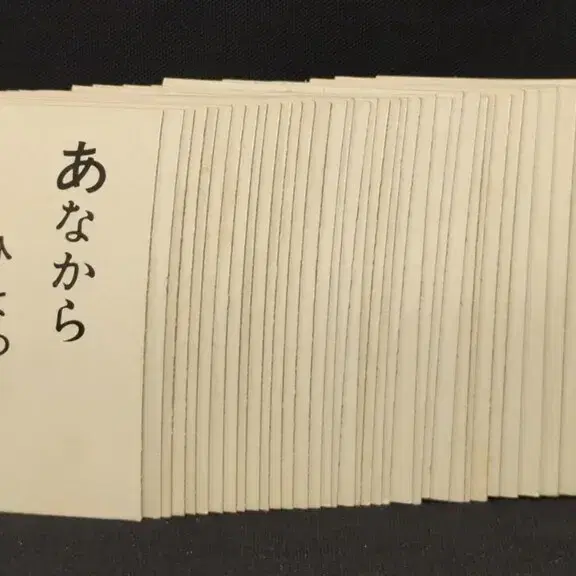 あなから